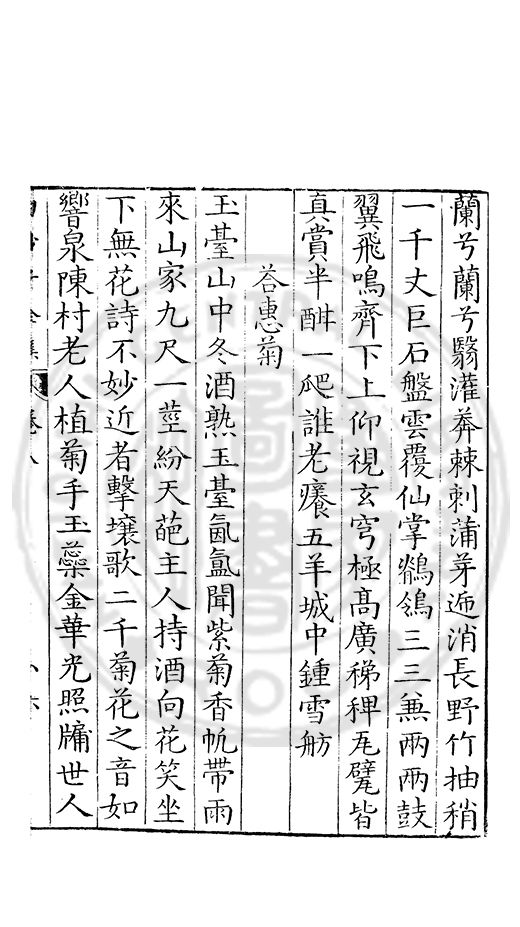 蘭兮蘭兮翳灌莽棘刺蒲茅遞消長野竹抽稍
一千丈巨石盤雲覆仙掌鶺鴒三三兼兩兩鼓
翼飛鳴齊下上仰視玄穹極高廣稊稗瓦甓皆
真賞半酣一爬誰老癢五羊城中鍾雪舫
荅惠菊
玉臺山中冬酒熟玉臺氤氳聞紫菊香帆帶雨
來山家九尺一莖紛天葩主人持酒向花笑坐
下無花詩不妙近者擊壤歌二千菊花之音如
響泉陳村老人植菊手玉蘂金華光照牖世人